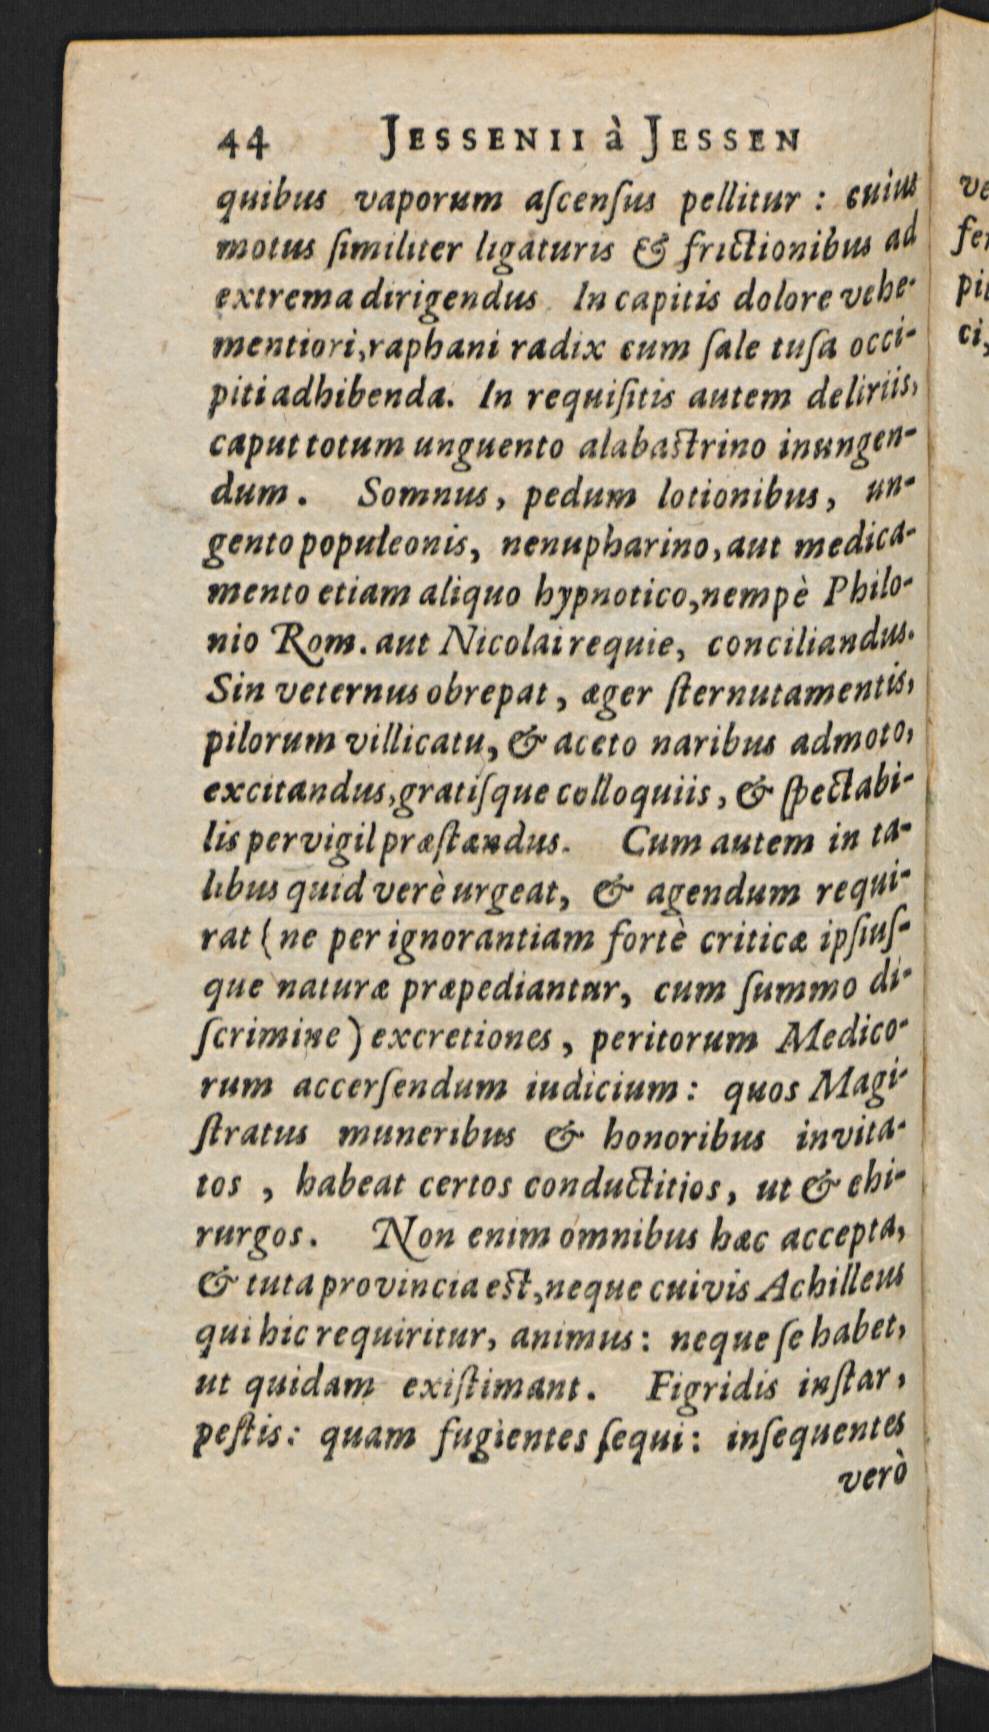 44 JESSENII à JESSEN
quibus vaporum aſcenſus pellitur : cuius
motus ſimiliter ligaturis & frictionibus ad
extrema dirigendus. In capitis dolore vehe-
mentiori, raphani radix cum ſale tuſa occi-
piti adhibenda. In requiſitis autem deliriis,
caput totum unguento alabaſtrino inungen-
dum. Somnus, pedum lotionibus, un-
gento populeonis, nenupharino, aut medica-
mento etiam aliquo hypnotico, nempè Philo-
nio Rom. aut Nicolai requie, conciliandus.
Sin veternus obrepat, æger ſternutamentis,
pilorum villicatu, & aceto naribus admoto,
excitandus, gratiſque colloquiis, & ſpectabi-
lis pervigil præſtandus. Cum autem in ta-
libus quid verè urgeat, & agendum requi-
rat (ne per ignorantiam fortè criticæ ipſiuſ-
que naturæ præpediantur, cum ſummo di-
ſcrimine) excretiones, peritorum Medico-
rum accerſendum iudicium: quos Magi-
ſtratus muneribus & honoribus invita-
tos, habeat certos conductitios, ut & chi-
rurgos. Non enim omnibus hæc accepta,
& tuta provincia eſt, neque cuivis Achilleus
qui hic requiritur, animus: neque ſe habet,
ut quidam exiſtimant. Figridis inſtar,
peſtis: quam fugientes ſequi: inſequentes
verò
ve
fer
pit
ci,